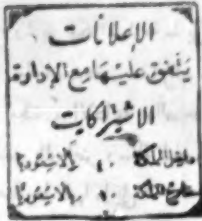 الإعلانات
يتفق عليها مع الإدارة
الاشتراكات
داخل المملكة
خارج المملكة